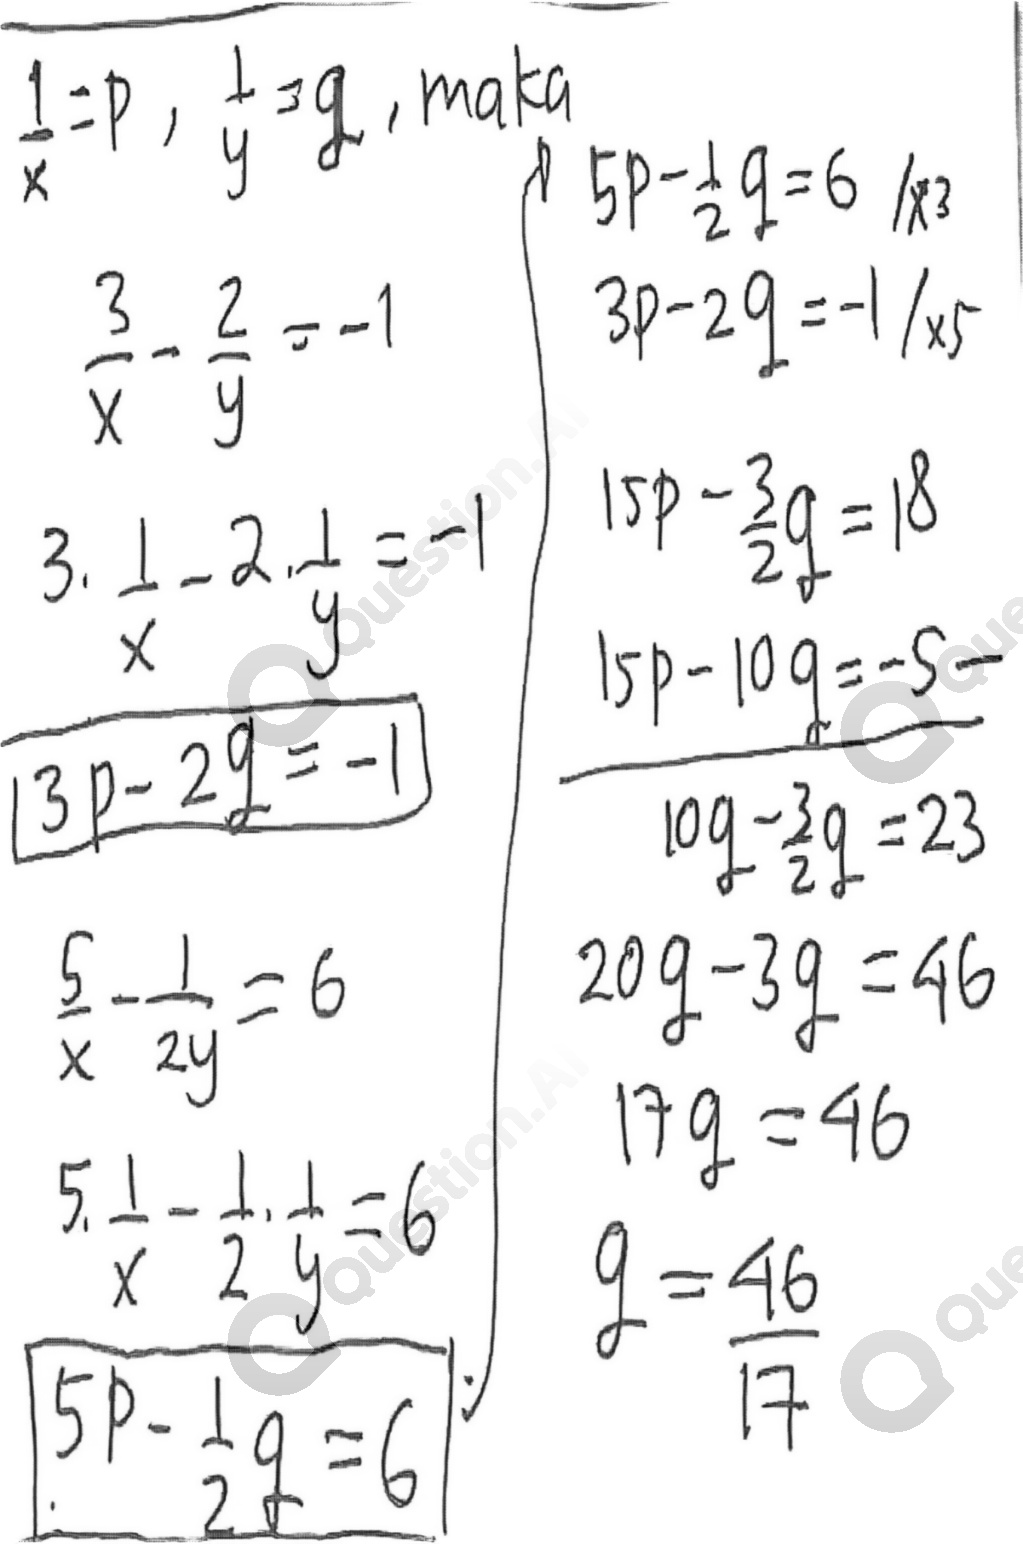 1/x = p, 1/y = q, maka
3/x - 2/y = -1
3. 1/x - 2. 1/y = -1
3p - 2q = -1
5/x - 1/2y = 6
5. 1/x - 1/2 . 1/y = 6
5p - 1/2 q = 6
5p - 1/2 q = 6 /x3
3p - 2q = -1 /x5
15p - 3/2 q = 18
15p - 10q = -5 -
10q - 3/2 q = 23
20q - 3q = 46
17q = 46
q = 46/17
Question.AI
Question.AI
Que
Que